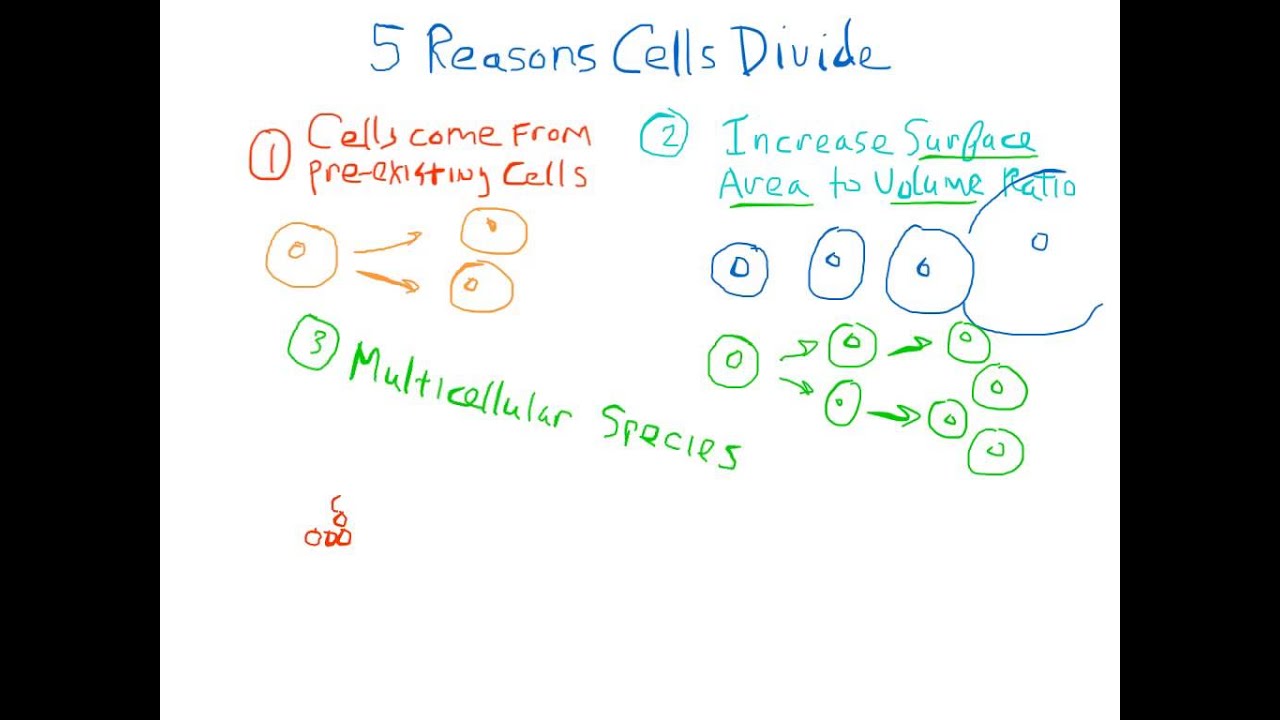 5 Reasons Cells Divide
1 Cells come From
pre-existing Cells
2 Increase Surface
Area to Volume Ratio
3 Multicellular Species